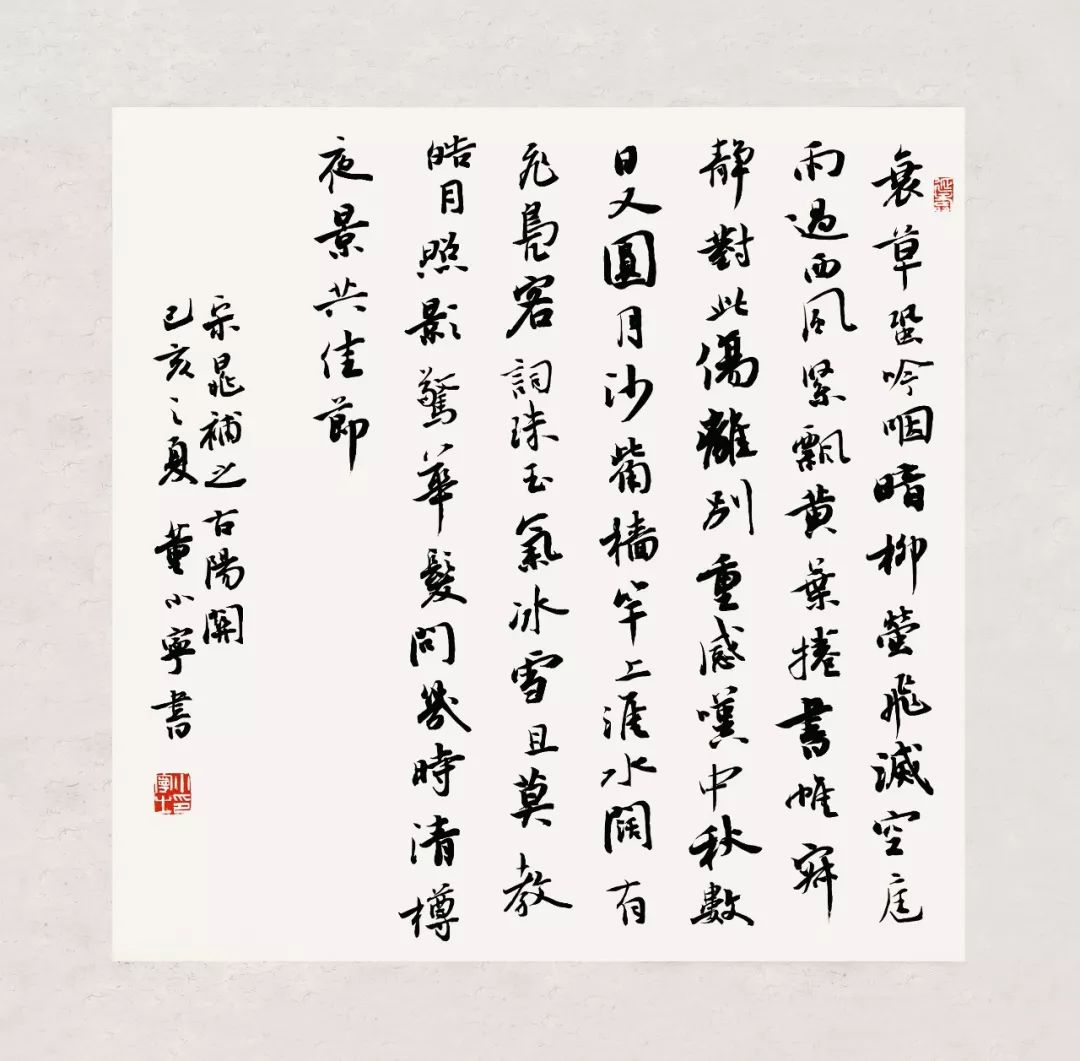 衰草蛩吟咽暗柳螢飛滅空庭
雨過西風緊飄黄葉捲書帷寂
靜對此傷離别重感嘆中秋數
日又圓月沙觜檣竿上淮水闊有
飛鳧客詞珠玉氣冰雪且莫教
皓月照影驚華髮問幾時清樽
夜景共佳節
宋晁補之古陽關
己亥之夏 董小寧書